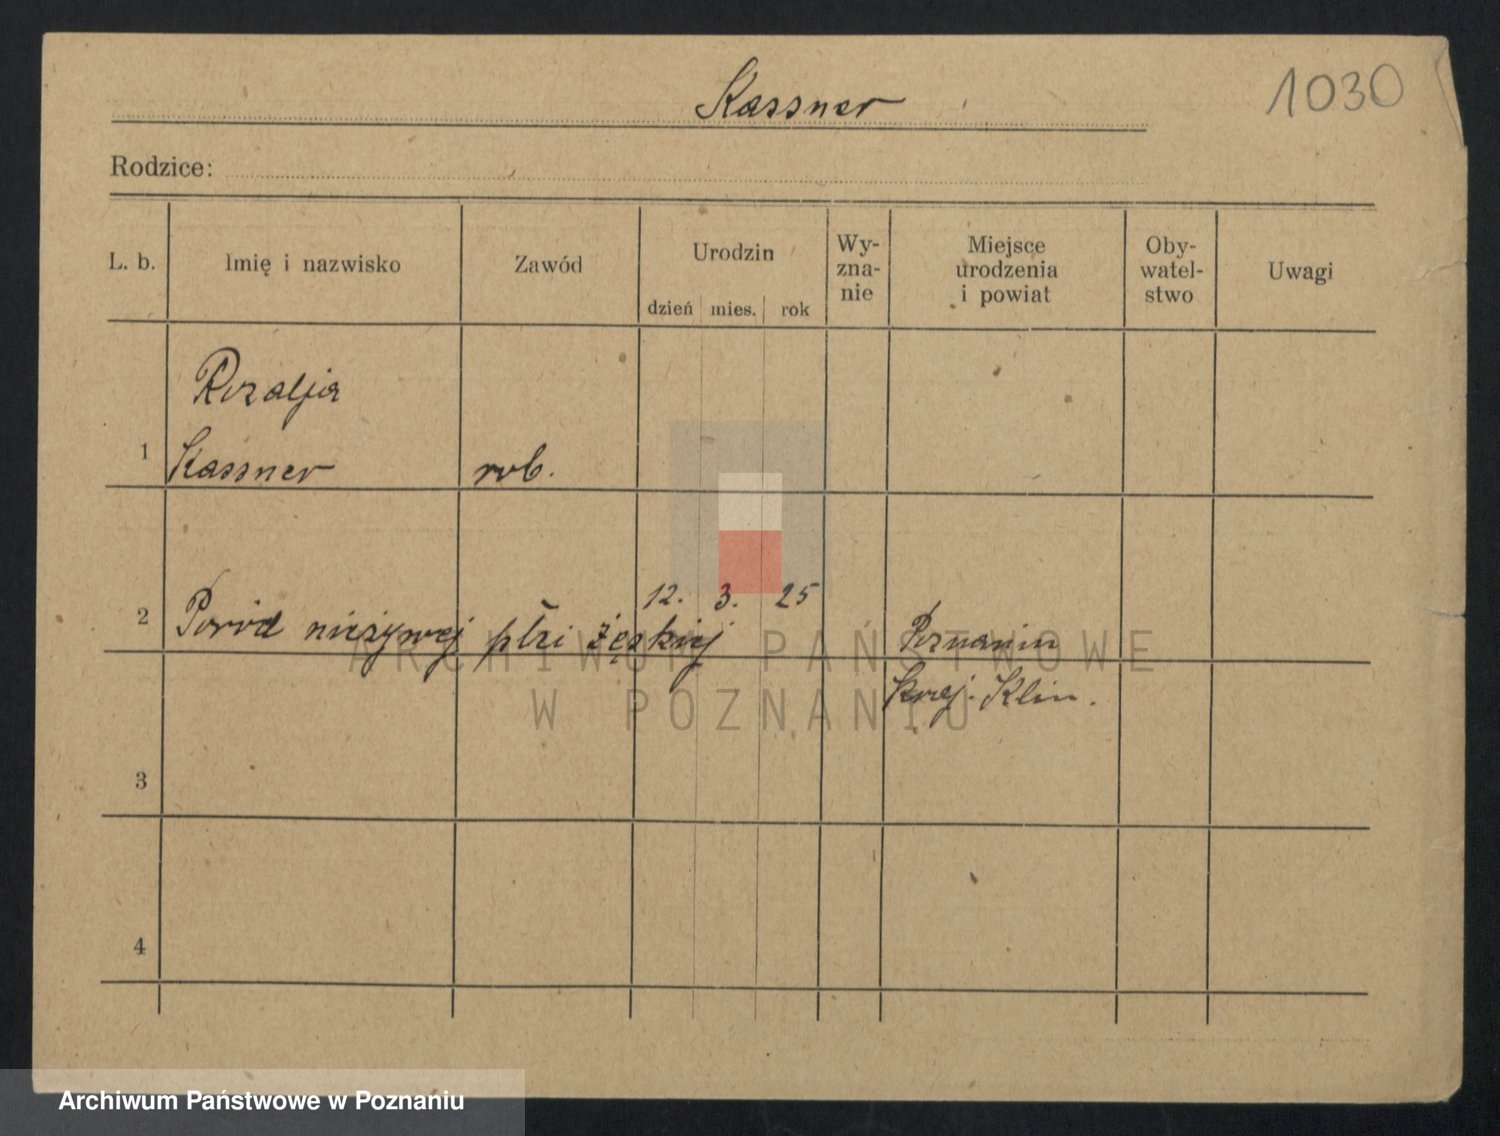 Kassner
1030
Rodzice:
L. b.
Imię i nazwisko
Zawód
Urodzin
dzień mies. rok
Wy-
zna-
nie
Miejsce
urodzenia
i powiat
Oby-
watel-
stwo
Uwagi
Rozalja
1 Kassner rob.
12. 3. 25
2 Poród nieżywej płci żęskiej Poznaniu
Klin.
3
4
ARCHIWUM PAŃSTWOWE
W POZNANIU
Archiwum Państwowe w Poznaniu